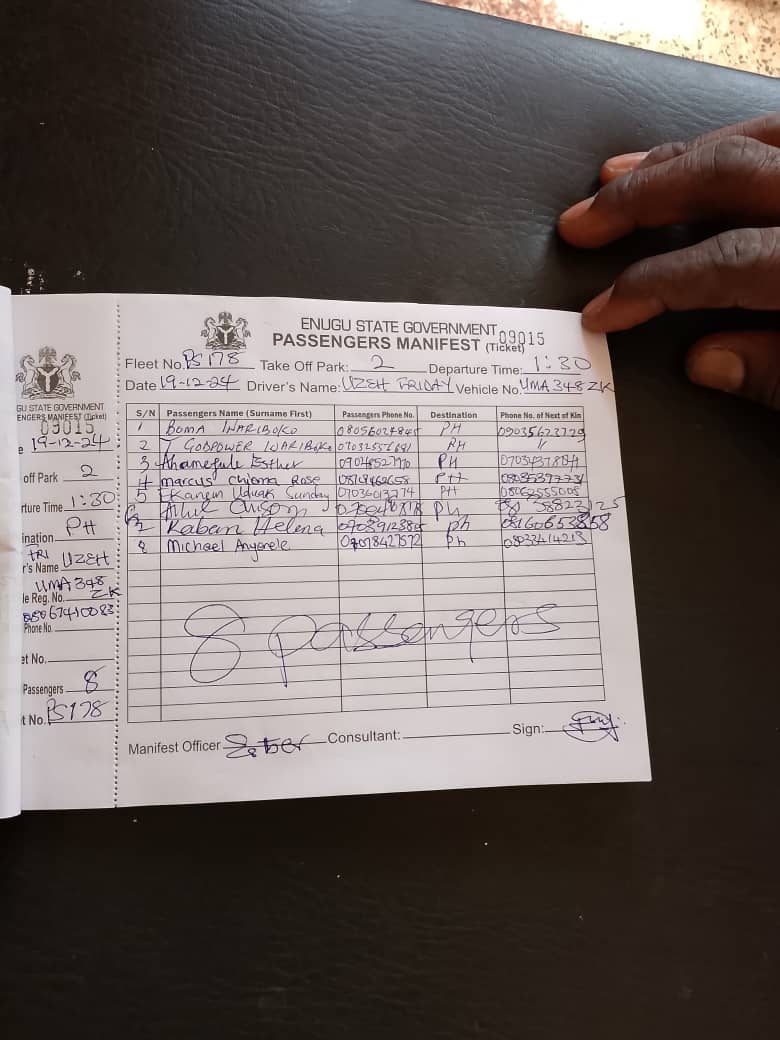 GU STATE GOVERNMENT
ENGERS MANIFEST (Ticket)
09015
e 19-12-24
off Park 2
rture Time 1:30
ination PH
FRI
r's Name UZEH
UMA 348
le Reg. No. ZK
Phone No.
et No.
Passengers 8
t No. PS178
ENUGU STATE GOVERNMENT
PASSENGERS MANIFEST (Ticket) 09015
Fleet No. PS178 Take Off Park: 2 Departure Time: 1:30
Date 19-12-24 Driver's Name: UZEH FRIDAY Vehicle No. UMA 348 ZK
S/N Passengers Name (Surname First) Passengers Phone No. Destination Phone No. of Next of Kin
1 BOMA INARIBOKO PH 09035623729
2 GODPOWER INARIBOKO PH "
3 Ahamefule Esther PH
4 marcus chioma Rose PH
5 Ekanem Uduak Sunday PH 08062555005
6 Chisom Ph
7 Kabari Helena Ph 08160653858
8 Michael Anyenele 09078427572 Ph
8 passengers
Manifest Officer Consultant: Sign: